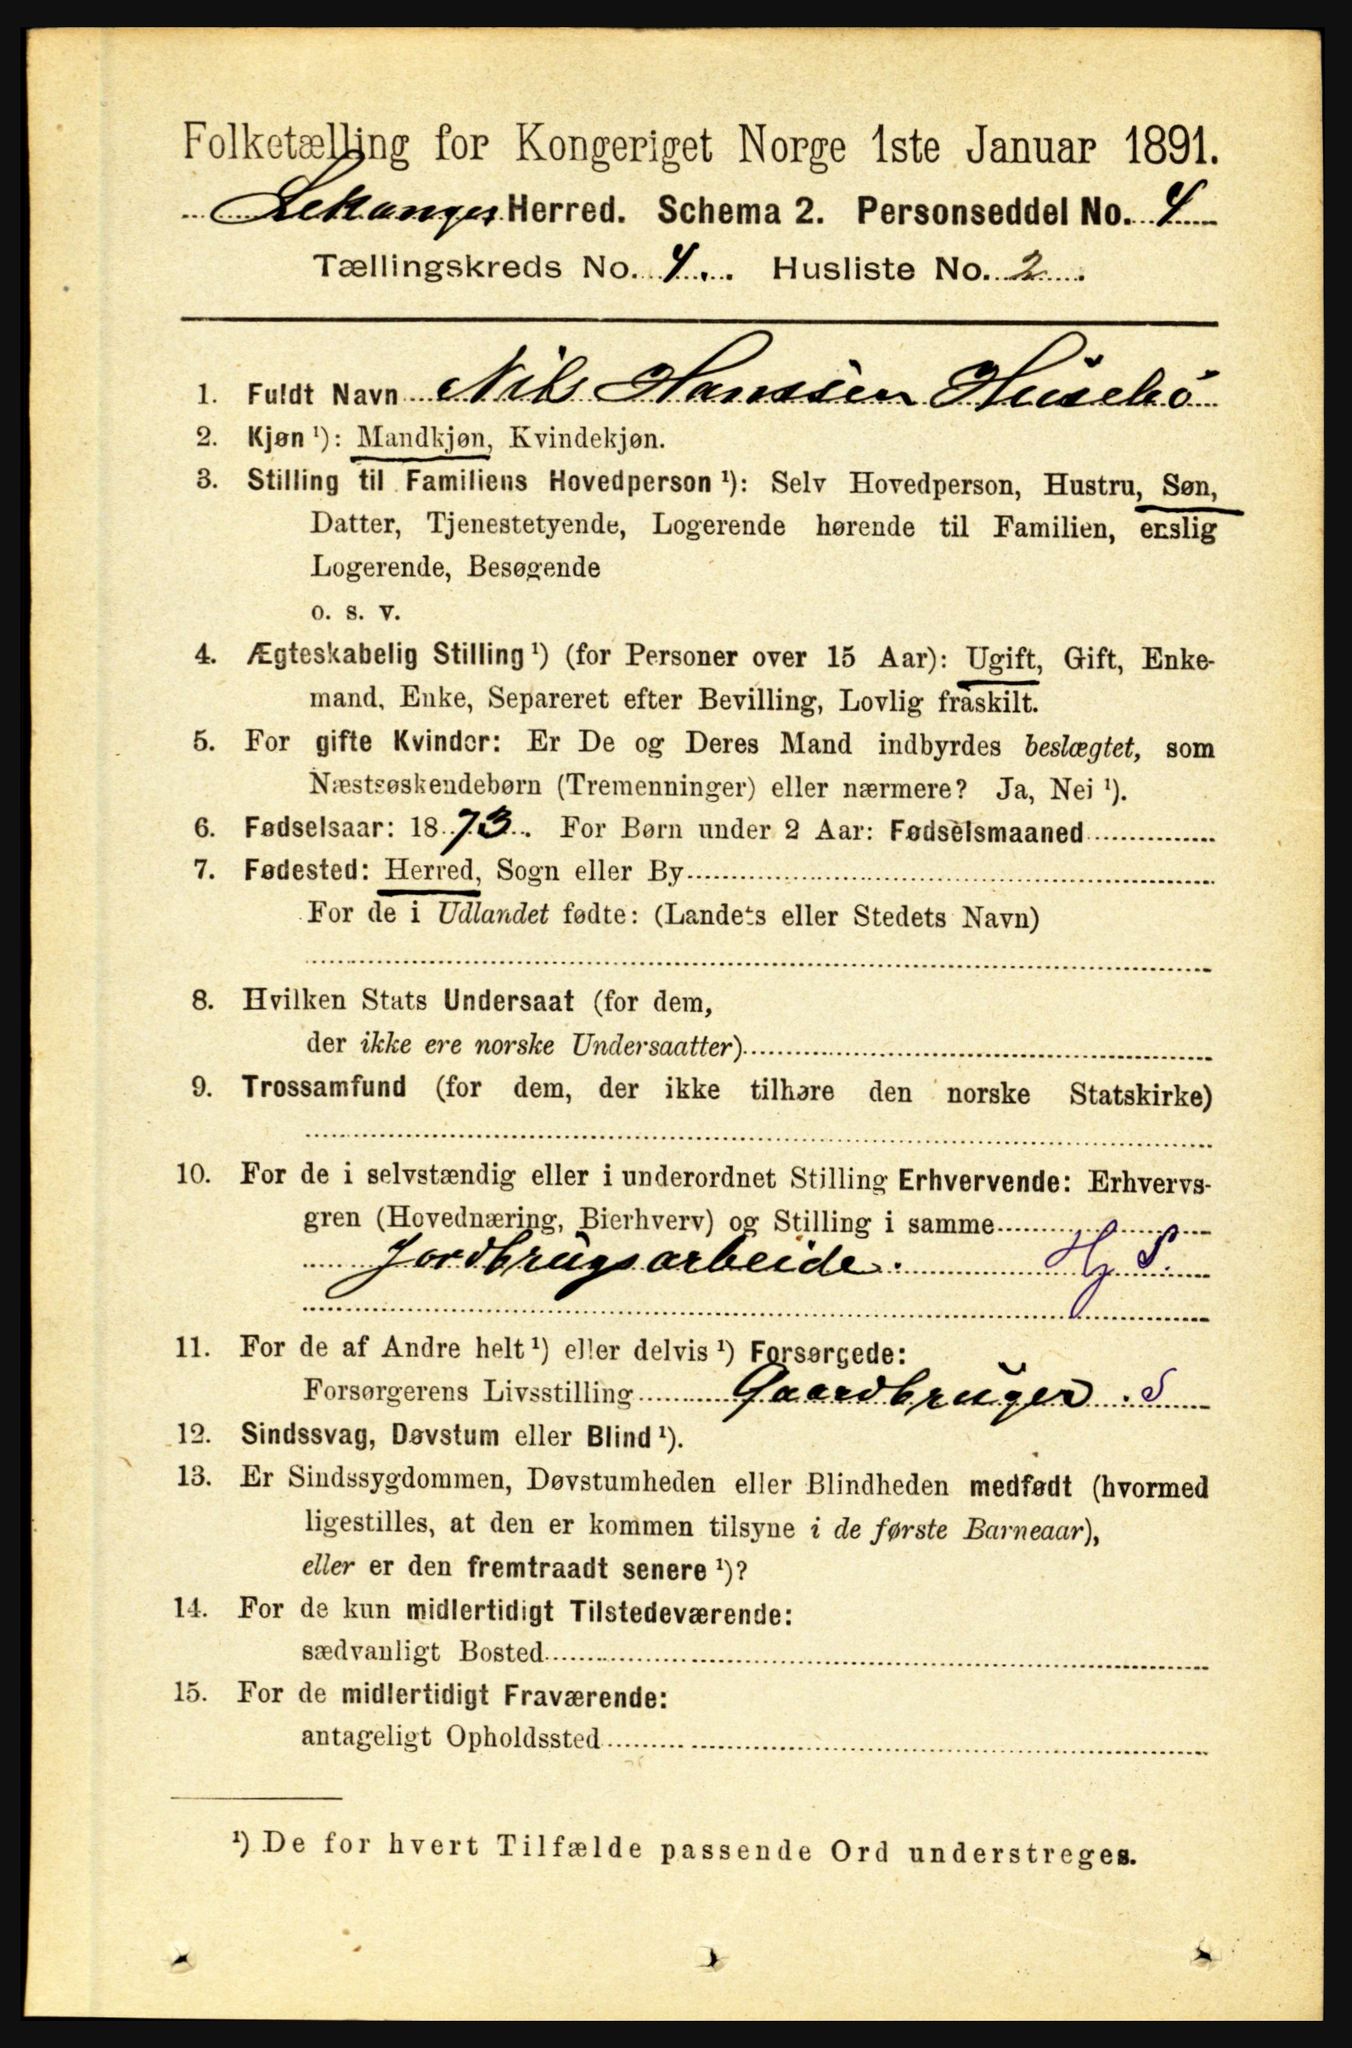 Folketælling for Kongeriget Norge 1ste Januar 1891.
Lekanger Herred. Schema 2. Personseddel No. 4
Tællingskreds No. 4. Husliste No. 2.
1. Fuldt Navn Nils Hanssen Husebö
2. Kjøn ¹): Mandkjøn, Kvindekjøn.
3. Stilling til Familiens Hovedperson ¹): Selv Hovedperson, Hustru, Søn,
Datter, Tjenestetyende, Logerende hørende til Familien, enslig
Logerende, Besøgende
o. s. v.
4. Ægteskabelig Stilling ¹) (for Personer over 15 Aar): Ugift, Gift, Enke-
mand, Enke, Separeret efter Bevilling, Lovlig fraskilt.
5. For gifte Kvinder: Er De og Deres Mand indbyrdes beslægtet, som
Næstsøskendebørn (Tremenninger) eller nærmere? Ja, Nei ¹).
6. Fødselsaar: 1873. For Børn under 2 Aar: Fødselsmaaned
7. Fødested: Herred, Sogn eller By
For de i Udlandet fødte: (Landets eller Stedets Navn)
8. Hvilken Stats Undersaat (for dem,
der ikke ere norske Undersaatter)
9. Trossamfund (for dem, der ikke tilhøre den norske Statskirke)
10. For de i selvstændig eller i underordnet Stilling Erhvervende: Erhvervs-
gren (Hovednæring, Bierhverv) og Stilling i samme
Jordbrugsarbeide. Hj S.
11. For de af Andre helt ¹) eller delvis ¹) Forsørgede:
Forsørgerens Livsstilling Gaardbruger. S
12. Sindssvag, Døvstum eller Blind ¹).
13. Er Sindssygdommen, Døvstumheden eller Blindheden medfødt (hvormed
ligestilles, at den er kommen tilsyne i de første Barneaar),
eller er den fremtraadt senere ¹)?
14. For de kun midlertidigt Tilstedeværende:
sædvanligt Bosted
15. For de midlertidigt Fraværende:
antageligt Opholdssted
¹) De for hvert Tilfælde passende Ord understreges.